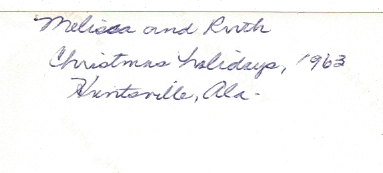 Melissa and Ruth
Christmas holidays, 1963
Huntsville, Ala.